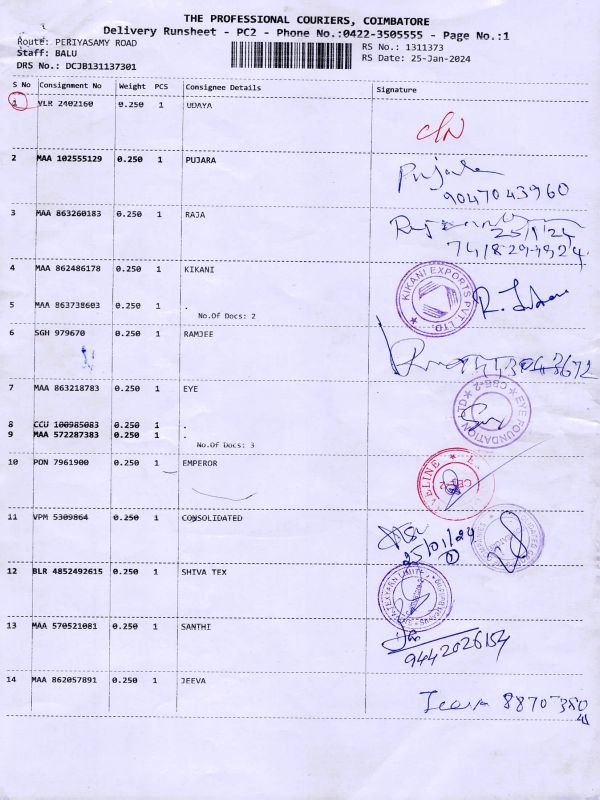 THE PROFESSIONAL COURIERS, COIMBATORE
Delivery Runsheet - PC2 - Phone No.:0422-3505555 - Page No.:1
Route: PERIYASAMY ROAD
RS No.: 1311373
Staff: BALU
RS Date: 25-Jan-2024
DRS No.: DCJB131137301
S No Consignment No Weight PCS Consignee Details Signature
1 VLR 2402160 0.250 1 UDAYA
2 MAA 102555129 0.250 1 PUJARA
Pujara
9047043960
3 MAA 863260183 0.250 1 RAJA
25/1/24
4 MAA 862486178 0.250 1 KIKANI
KIKANI EXPORTS PVT. LTD
5 MAA 863738603 0.250 1 .
No.Of Docs: 2
6 SGH 979670 0.250 1 RAMJEE
7 MAA 863218783 0.250 1 EYE
EYE FOUNDATION LTD CBE-2
8 CCU 100985083 0.250 1 .
9 MAA 572287383 0.250 1 .
No.Of Docs: 3
10 PON 7961900 0.250 1 EMPEROR
11 VPM 5309864 0.250 1 CONSOLIDATED
25/01/24
12 BLR 4852492615 0.250 1 SHIVA TEX
13 MAA 570521081 0.250 1 SANTHI
9442026154
14 MAA 862057891 0.250 1 JEEVA
Jeeva 8870-380